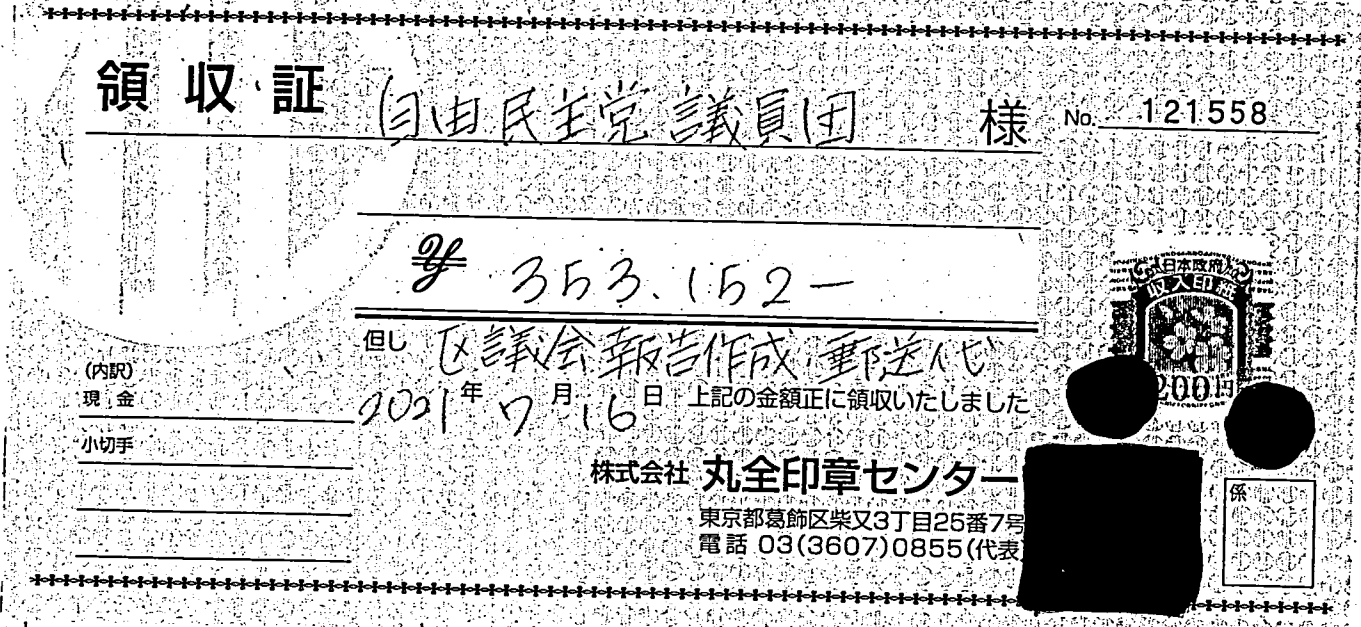 領収証 自由民主党議員団 様 No. 121558
¥ 353.152-
但し 区議会報告作成・郵送代
(内訳)
現金
小切手
2021年7月16日 上記の金額正に領収いたしました
日本政府
収入印紙
200円
株式会社 丸全印章センター
東京都葛飾区柴又3丁目25番7号
電話 03(3607)0855(代表
係